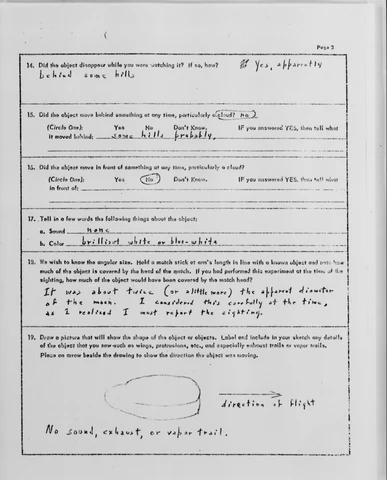 Page 3
14. Did the object disappear while you were watching it? If so, how? Yes, apparently
behind some hills
15. Did the object move behind something at any time, particularly a cloud? No
(Circle One): Yes No Don't Know. IF you answered YES, then tell what
it moved behind: some hills probably.
16. Did the object move in front of something at any time, particularly a cloud?
(Circle One): Yes No Don't Know. IF you answered YES, then tell what
in front of:
17. Tell in a few words the following things about the object:
a. Sound none
b. Color brilliant white or blue-white
18. We wish to know the angular size. Hold a match stick at arm's length in line with a known object and note how
much of the object is covered by the head of the match. If you had performed this experiment at the time of the
sighting, how much of the object would have been covered by the match head?
It was about twice (or a little more) the apparent diameter
of the moon. I considered this carefully at the time,
as I realized I must report the sighting.
19. Draw a picture that will show the shape of the object or objects. Label and include in your sketch any details
of the object that you saw such as wings, protrusions, etc., and especially exhaust trails or vapor trails.
Place an arrow beside the drawing to show the direction the object was moving.
direction of flight
No sound, exhaust, or vapor trail.